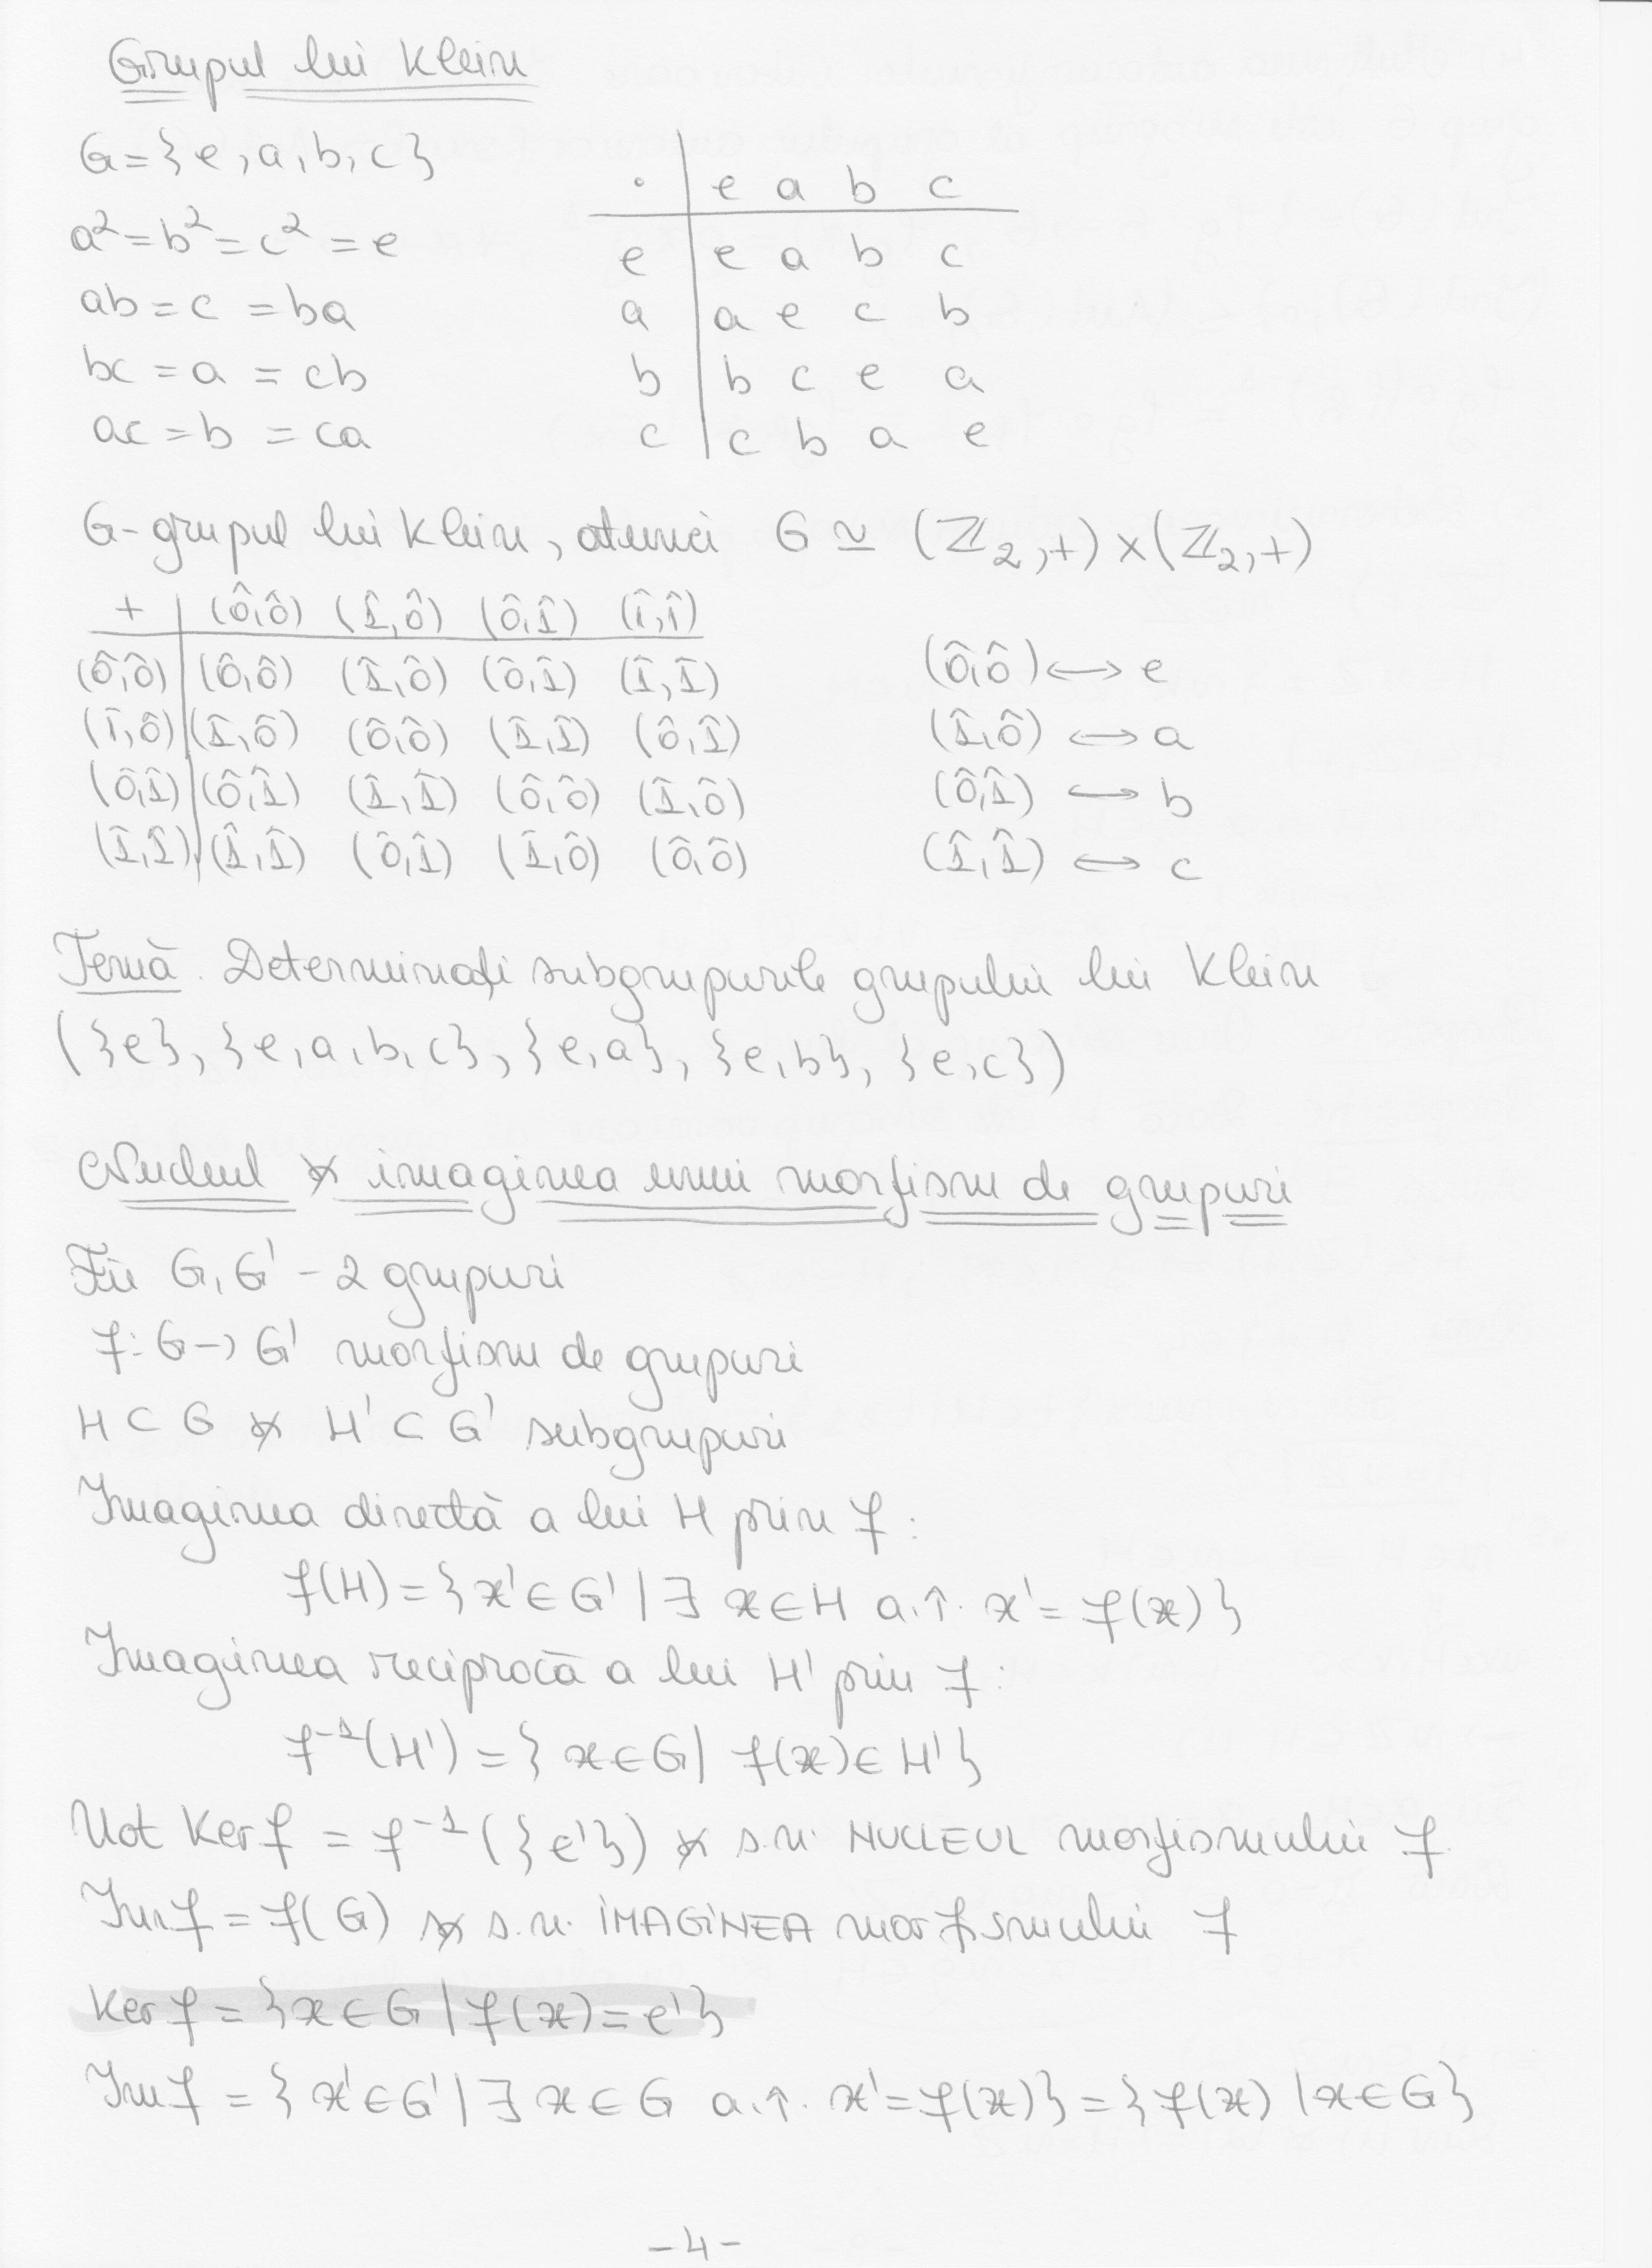 Grupul lui Klein
G = {e, a, b, c}
a² = b² = c² = e
ab = c = ba
bc = a = cb
ac = b = ca
· | e a b c
e | e a b c
a | a e c b
b | b c e a
c | c b a e
G - grupul lui Klein, atunci G ≃ (ℤ₂,+) × (ℤ₂,+)
+ | (0̂,0̂) (1̂,0̂) (0̂,1̂) (1̂,1̂)
(0̂,0̂) | (0̂,0̂) (1̂,0̂) (0̂,1̂) (1̂,1̂)
(1̂,0̂) | (1̂,0̂) (0̂,0̂) (1̂,1̂) (0̂,1̂)
(0̂,1̂) | (0̂,1̂) (1̂,1̂) (0̂,0̂) (1̂,0̂)
(1̂,1̂) | (1̂,1̂) (0̂,1̂) (1̂,0̂) (0̂,0̂)
(0̂,0̂) ↔ e
(1̂,0̂) ↔ a
(0̂,1̂) ↔ b
(1̂,1̂) ↔ c
Temă. Determinați subgrupurile grupului lui Klein
({e}, {e, a, b, c}, {e, a}, {e, b}, {e, c})
Nucleul și imaginea unui morfism de grupuri
Fie G, G' - 2 grupuri
f: G → G' morfism de grupuri
H ⊂ G și H' ⊂ G' subgrupuri
Imaginea directă a lui H prin f:
f(H) = {x' ∈ G' | ∃ x ∈ H a.î. x' = f(x)}
Imaginea reciprocă a lui H' prin f:
f⁻¹(H') = {x ∈ G | f(x) ∈ H'}
Not Ker f = f⁻¹({e'}) și s.n. NUCLEUL morfismului f
Im f = f(G) și s.n. IMAGINEA morfismului f
Ker f = {x ∈ G | f(x) = e'}
Im f = {x' ∈ G' | ∃ x ∈ G a.î. x' = f(x)} = {f(x) | x ∈ G}
-4-